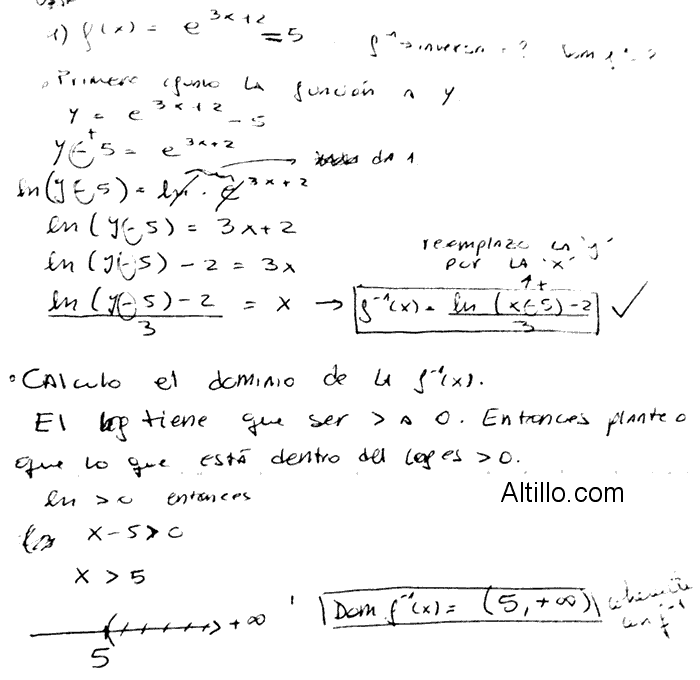 1) f(x) = e^{3x+2} = 5 f⁻¹ → inversa = ? Dom f⁻¹ = ?
• Primero igualo la función a y
y = e^{3x+2} - 5
y + 5 = e^{3x+2}
ln(y - 5) = ln · e^{3x+2} → da 1
ln(y - 5) = 3x+2
ln(y - 5) - 2 = 3x
reemplazo la "y"
por la "x"
ln(y - 5) - 2 / 3 = x → f⁻¹(x) = ln(x - 5) - 2 / 3 ✓
• Calculo el dominio de la f⁻¹(x).
El log tiene que ser > a 0. Entonces planteo
que lo que está dentro del log es > 0.
ln > 0 entonces
Altillo.com
x - 5 > 0
x > 5
Dom f⁻¹(x) = (5, +∞)
+∞
5